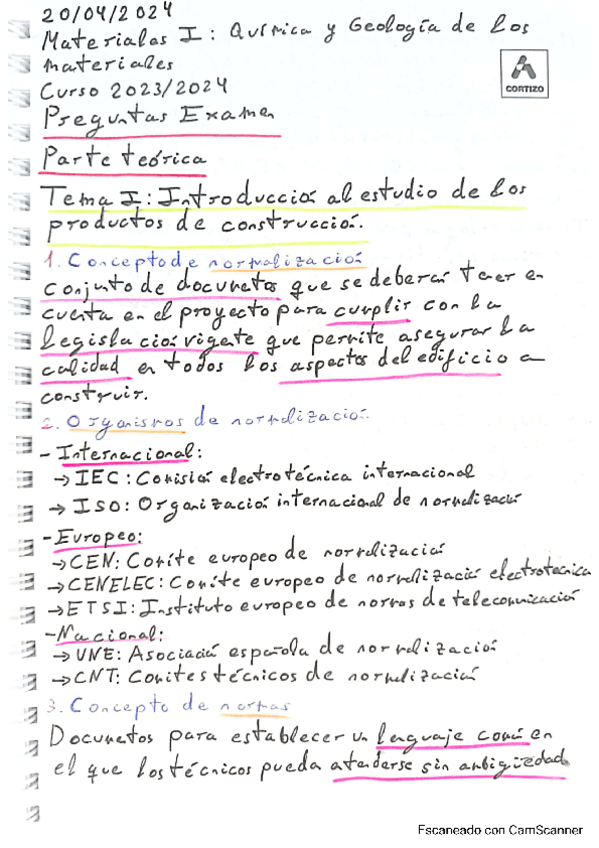 20/04/2024
Materiales I: Química y Geología de los
materiales
CORTIZO
Curso 2023/2024
Preguntas Examen
Parte teórica
Tema I: Introducción al estudio de los
productos de construcción.
1. Concepto de normalización
Conjunto de documentos que se deberán tener en
cuenta en el proyecto para cumplir con la
legislación vigente que permite asegurar la
calidad en todos los aspectos del edificio a
construir.
2. Organismos de normalización.
- Internacional:
→ IEC: Comisión electrotécnica internacional
→ ISO: Organización internacional de normalización
- Europeo:
→ CEN: Comite europeo de normalización
→ CENELEC: Comite europeo de normalización electrotecnica
→ ETSI: Instituto europeo de normas de telecomunicación
- Nacional:
→ UNE: Asociación española de normalización
→ CNT: Comites técnicos de normalización
3. Concepto de normas
Documentos para establecer un lenguaje común en
el que los técnicos pueda atenderse sin ambigüedad
Escaneado con CamScanner